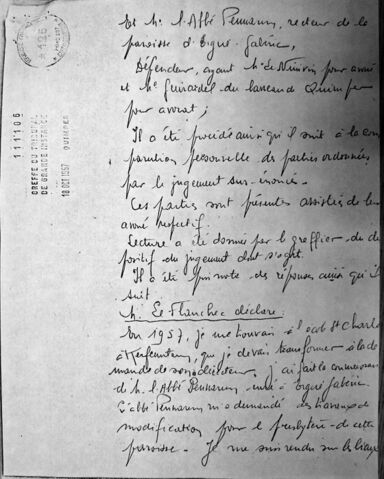 Et M. l'Abbé Pennarun, recteur de la
paroisse d'Ergué-Gabéric,
Défendeur, ayant Me Le Ninivin pour avoué
et Me Guirardel du barreau Quimper
pour avocat;
Il a été procédé ainsi qu'il suit à la com
parution personnelle des parties ordonnées
par le jugement sus-énoncé.
Ces parties sont présentes assistées de leur
avoué respectif.
Lecture a été donnée par le greffier du dis
positif du jugement dont s'agit.
Il a été pris note des réponses ainsi qu'il
suit.
M. Le Flanchec déclare.
En 1957, je me trouvais à l'école St Charles
à Kerfeunteun, que je devais transformer à la de
mande de son directeur. J'ai fait la connaissance
de M. l'Abbé Pennarun à Ergué Gabéric.
L'abbé Pennarun m'a demandé des travaux de
modification pour le presbytère de cette
paroisse. Je me suis rendu sur les lieux
111106
GREFFE DU TRIBUNAL
DE GRANDE INSTANCE
QUIMPER
18 OCT 1967